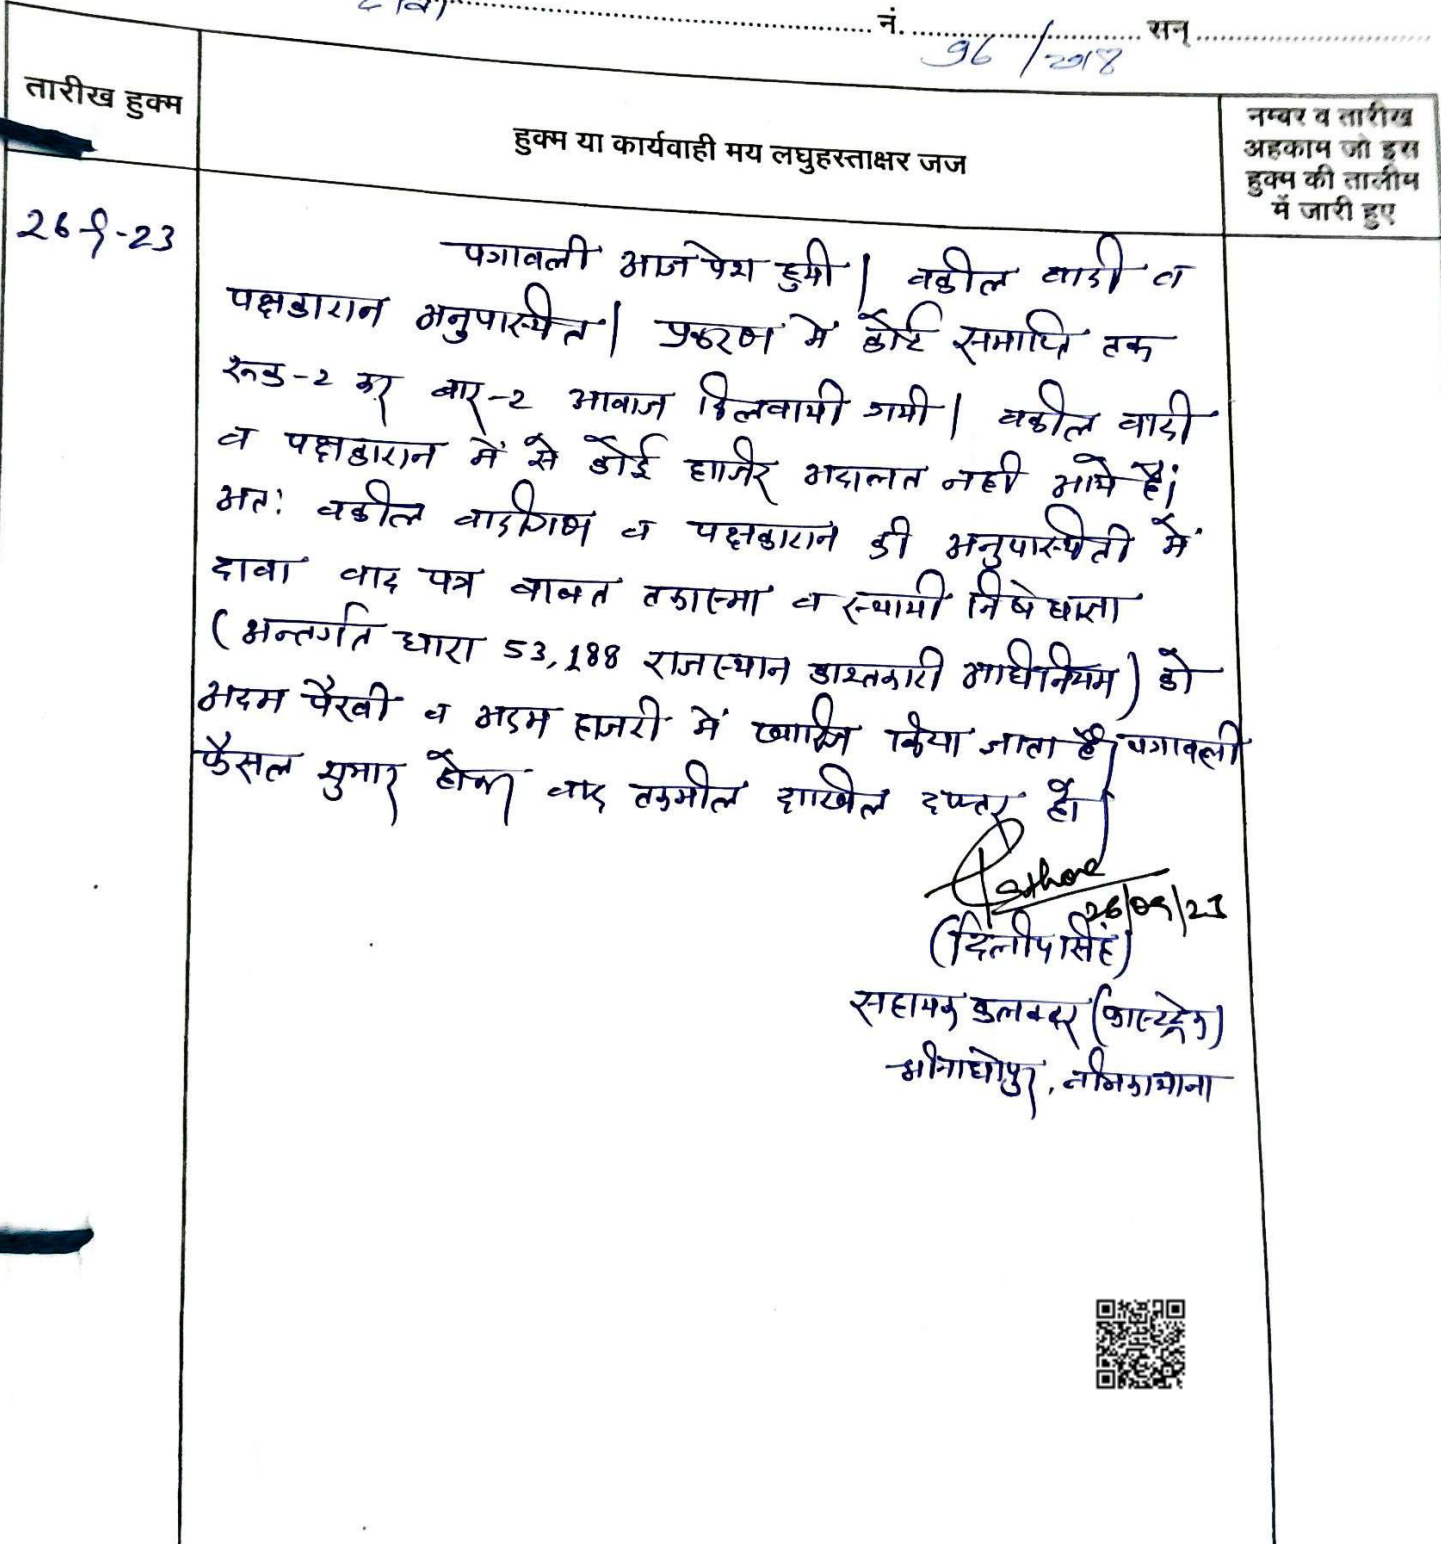 नं. 96/2018 सन्
तारीख हुक्म
हुक्म या कार्यवाही मय लघुहस्ताक्षर जज
नम्बर व तारीख
अहकाम जो इस
हुक्म की तालीम
में जारी हुए
26-9-23
पत्रावली आज पेश हुयी। वकील वादी व
पक्षकारान अनुपस्थित। प्रकरण में कोर्ट समाप्ति तक
रूक-2 कर बार-2 आवाज दिलवायी गयी। वकील वादी
व पक्षकारान में से कोई हाजिर अदालत नही आये है।
अतः वकील वादीगण व पक्षकारान की अनुपस्थिती में
दावा वाद पत्र बाबत तकास्मा व स्थायी निषेधाज्ञा
(अन्तर्गत धारा 53,188 राजस्थान काश्तकारी अधिनियम) को
अदम पैरवी व अदम हाजरी में खारिज किया जाता है। पत्रावली
फैसल शुमार होकर बाद तकमील दाखिल दफ्तर हो।
Rathore
26/09/23
(दिलीप सिंह)
सहायक कलक्टर (फास्टट्रेक)
श्रीमाधोपुर, नीमकाथाना